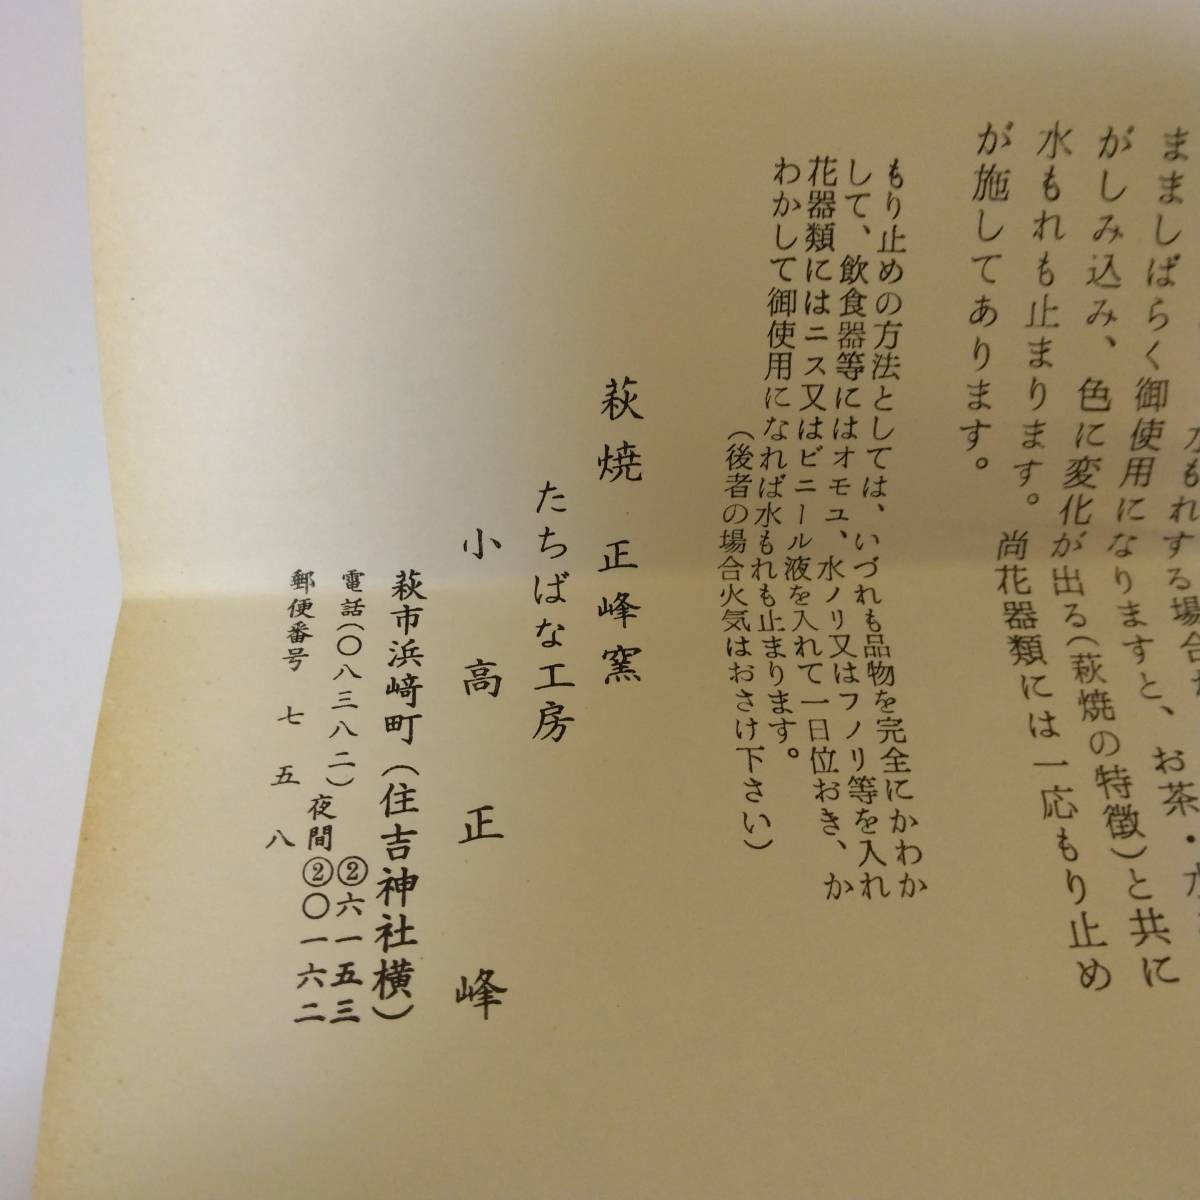 水もれする場合
ましばらく御使用になりますと、お茶・水
がしみ込み、色に変化が出る(萩焼の特徴)と共に
水もれも止まります。尚花器類には一応もり止め
が施してあります。
もり止めの方法としては、いづれも品物を完全にかわか
して、飲食器等にはオモユ、水ノリ又はフノリ等を入れ
花器類にはニス又はビニール液を入れて一日位おき、か
わかして御使用になれば水もれも止まります。
(後者の場合火気はおさけ下さい)
萩焼 正峰窯
たちばな工房
小高正峰
萩市浜﨑町(住吉神社横)
電話(〇八三八二)②六一五三
夜間②〇一六二
郵便番号 七五八